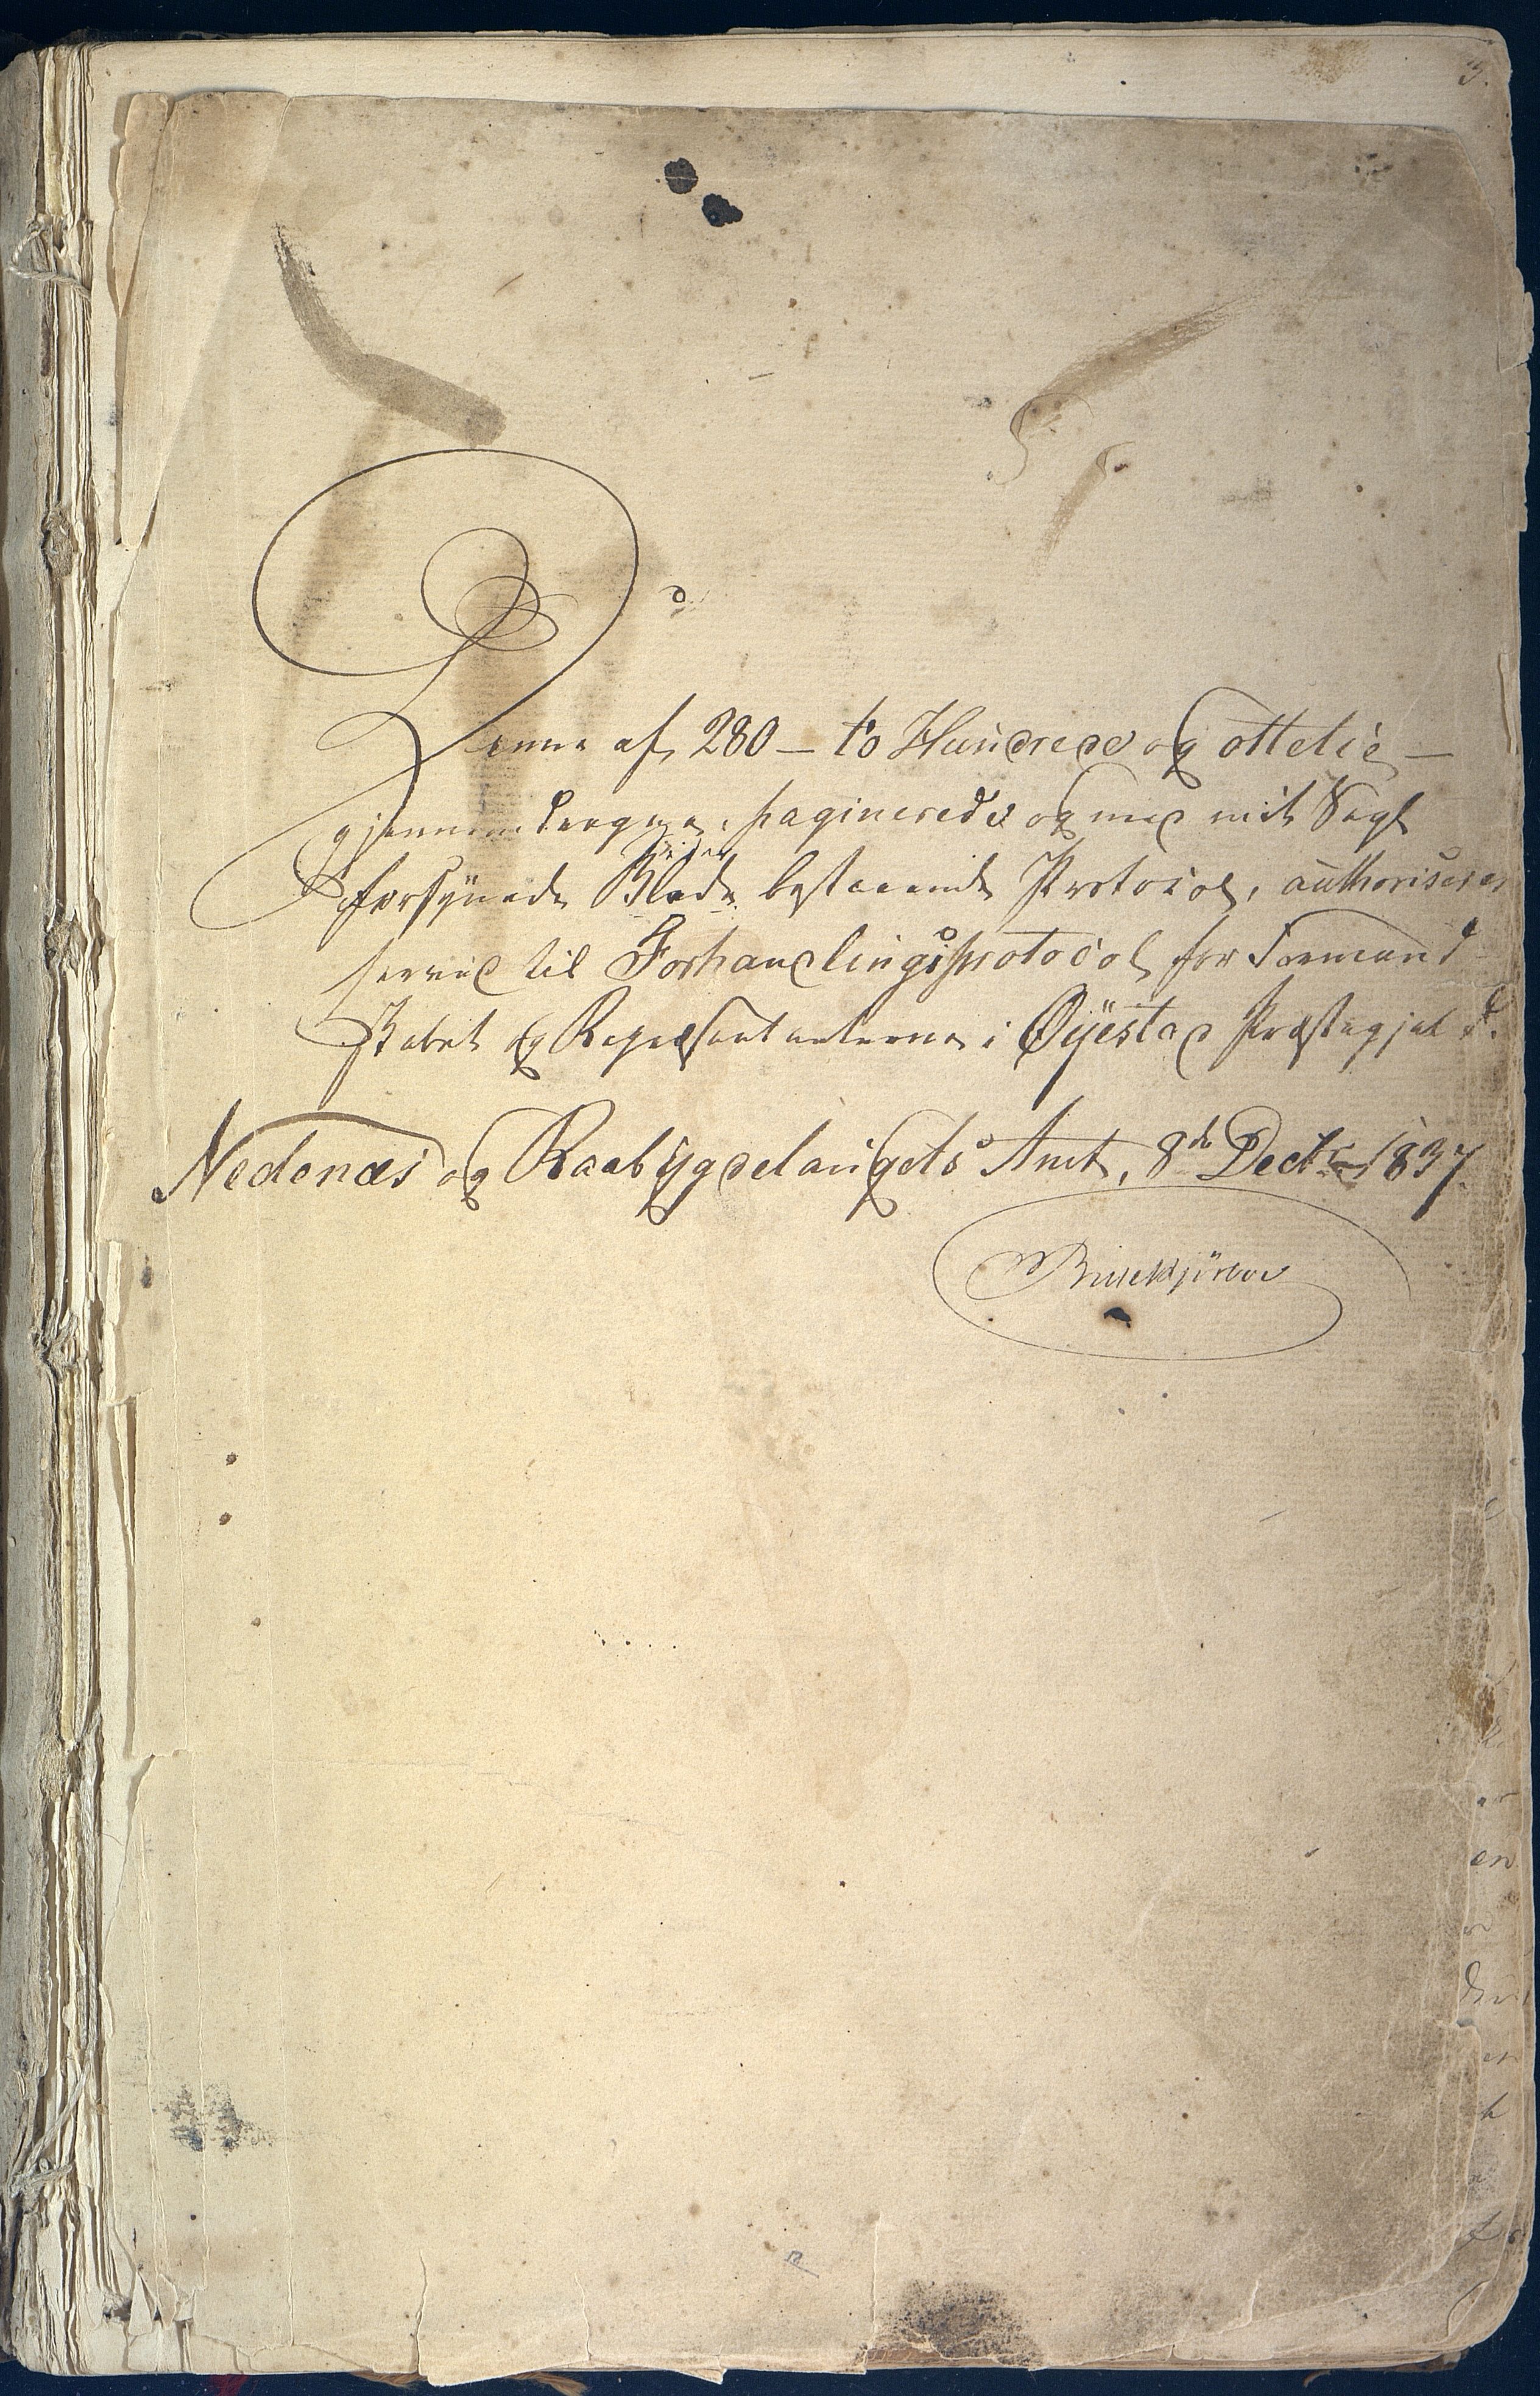 3.
Denne af 280 – to Hundrede og ottetie –
gjennemdragne, paginerede og med mit Segl
Sider
forsynede Blade bestaaende Protocol, authoriseres
herved til Forhandlingsprotocol for Formand-
skabet og Repræsentanterne i Øÿestad Præstegjeld.
Nedenæs og Raabÿgdelaugets Amt, 8de Decbr 1837.